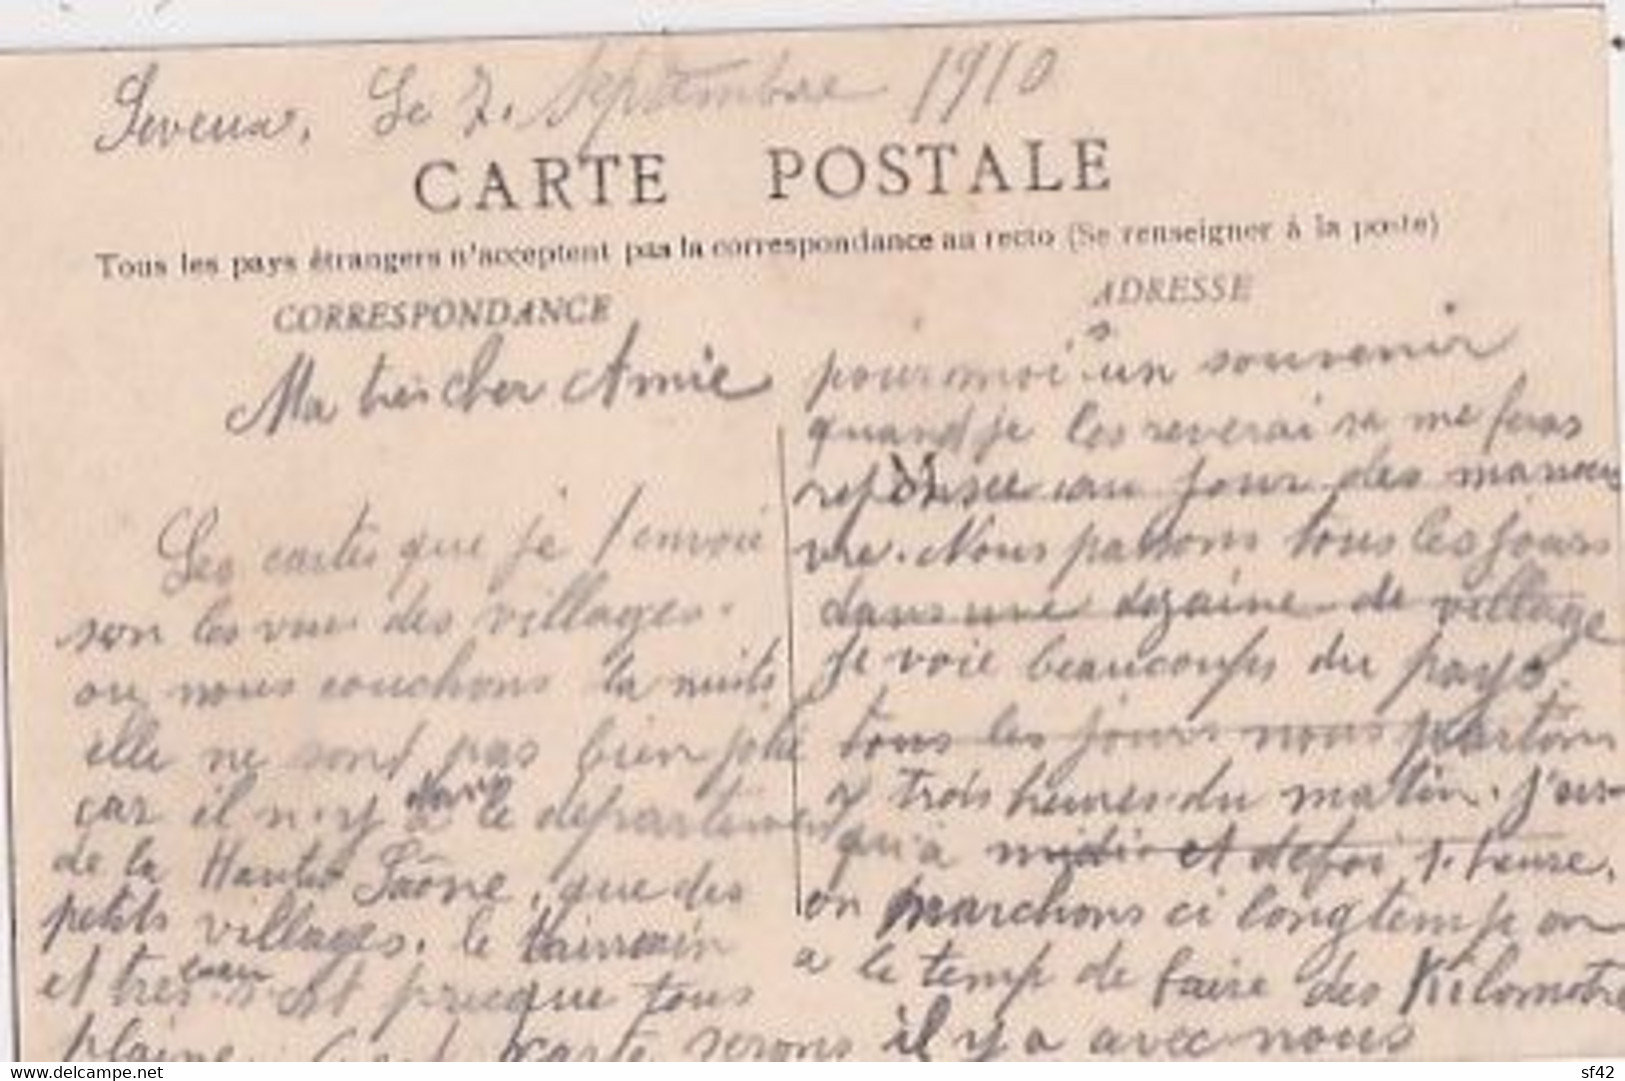 Seveux, Le 7. Septembre 1910
CARTE POSTALE
Tous les pays étrangers n'acceptent pas la correspondance au recto (Se renseigner à la poste)
CORRESPONDANCE
Ma tres cher Amie
Les cartes que je t'envoie
son les vue des villages.
ou nous couchons la nuits
elle ne sont pas bien jolie
car il n.y dans le departement
de la Haute Saône, que des
petits villages. le tairrain
et tres et presque tous
plaine. Cest carte serons
ADRESSE
pour moi un souvenir
quand je les reverai sa me feras
reponsee au jour des manoeu
vre. Nous passons tous les jours
dans une dizaine de village
je voie beaucoups du pays.
tous les jours nous partons
a trois heures du matin. jus-
qu'a midi et defoi 1. heure.
on marchons ci longtemp on
a le temp de faire des Kilometre
il y a avec nous
www.delcampe.net
sf42